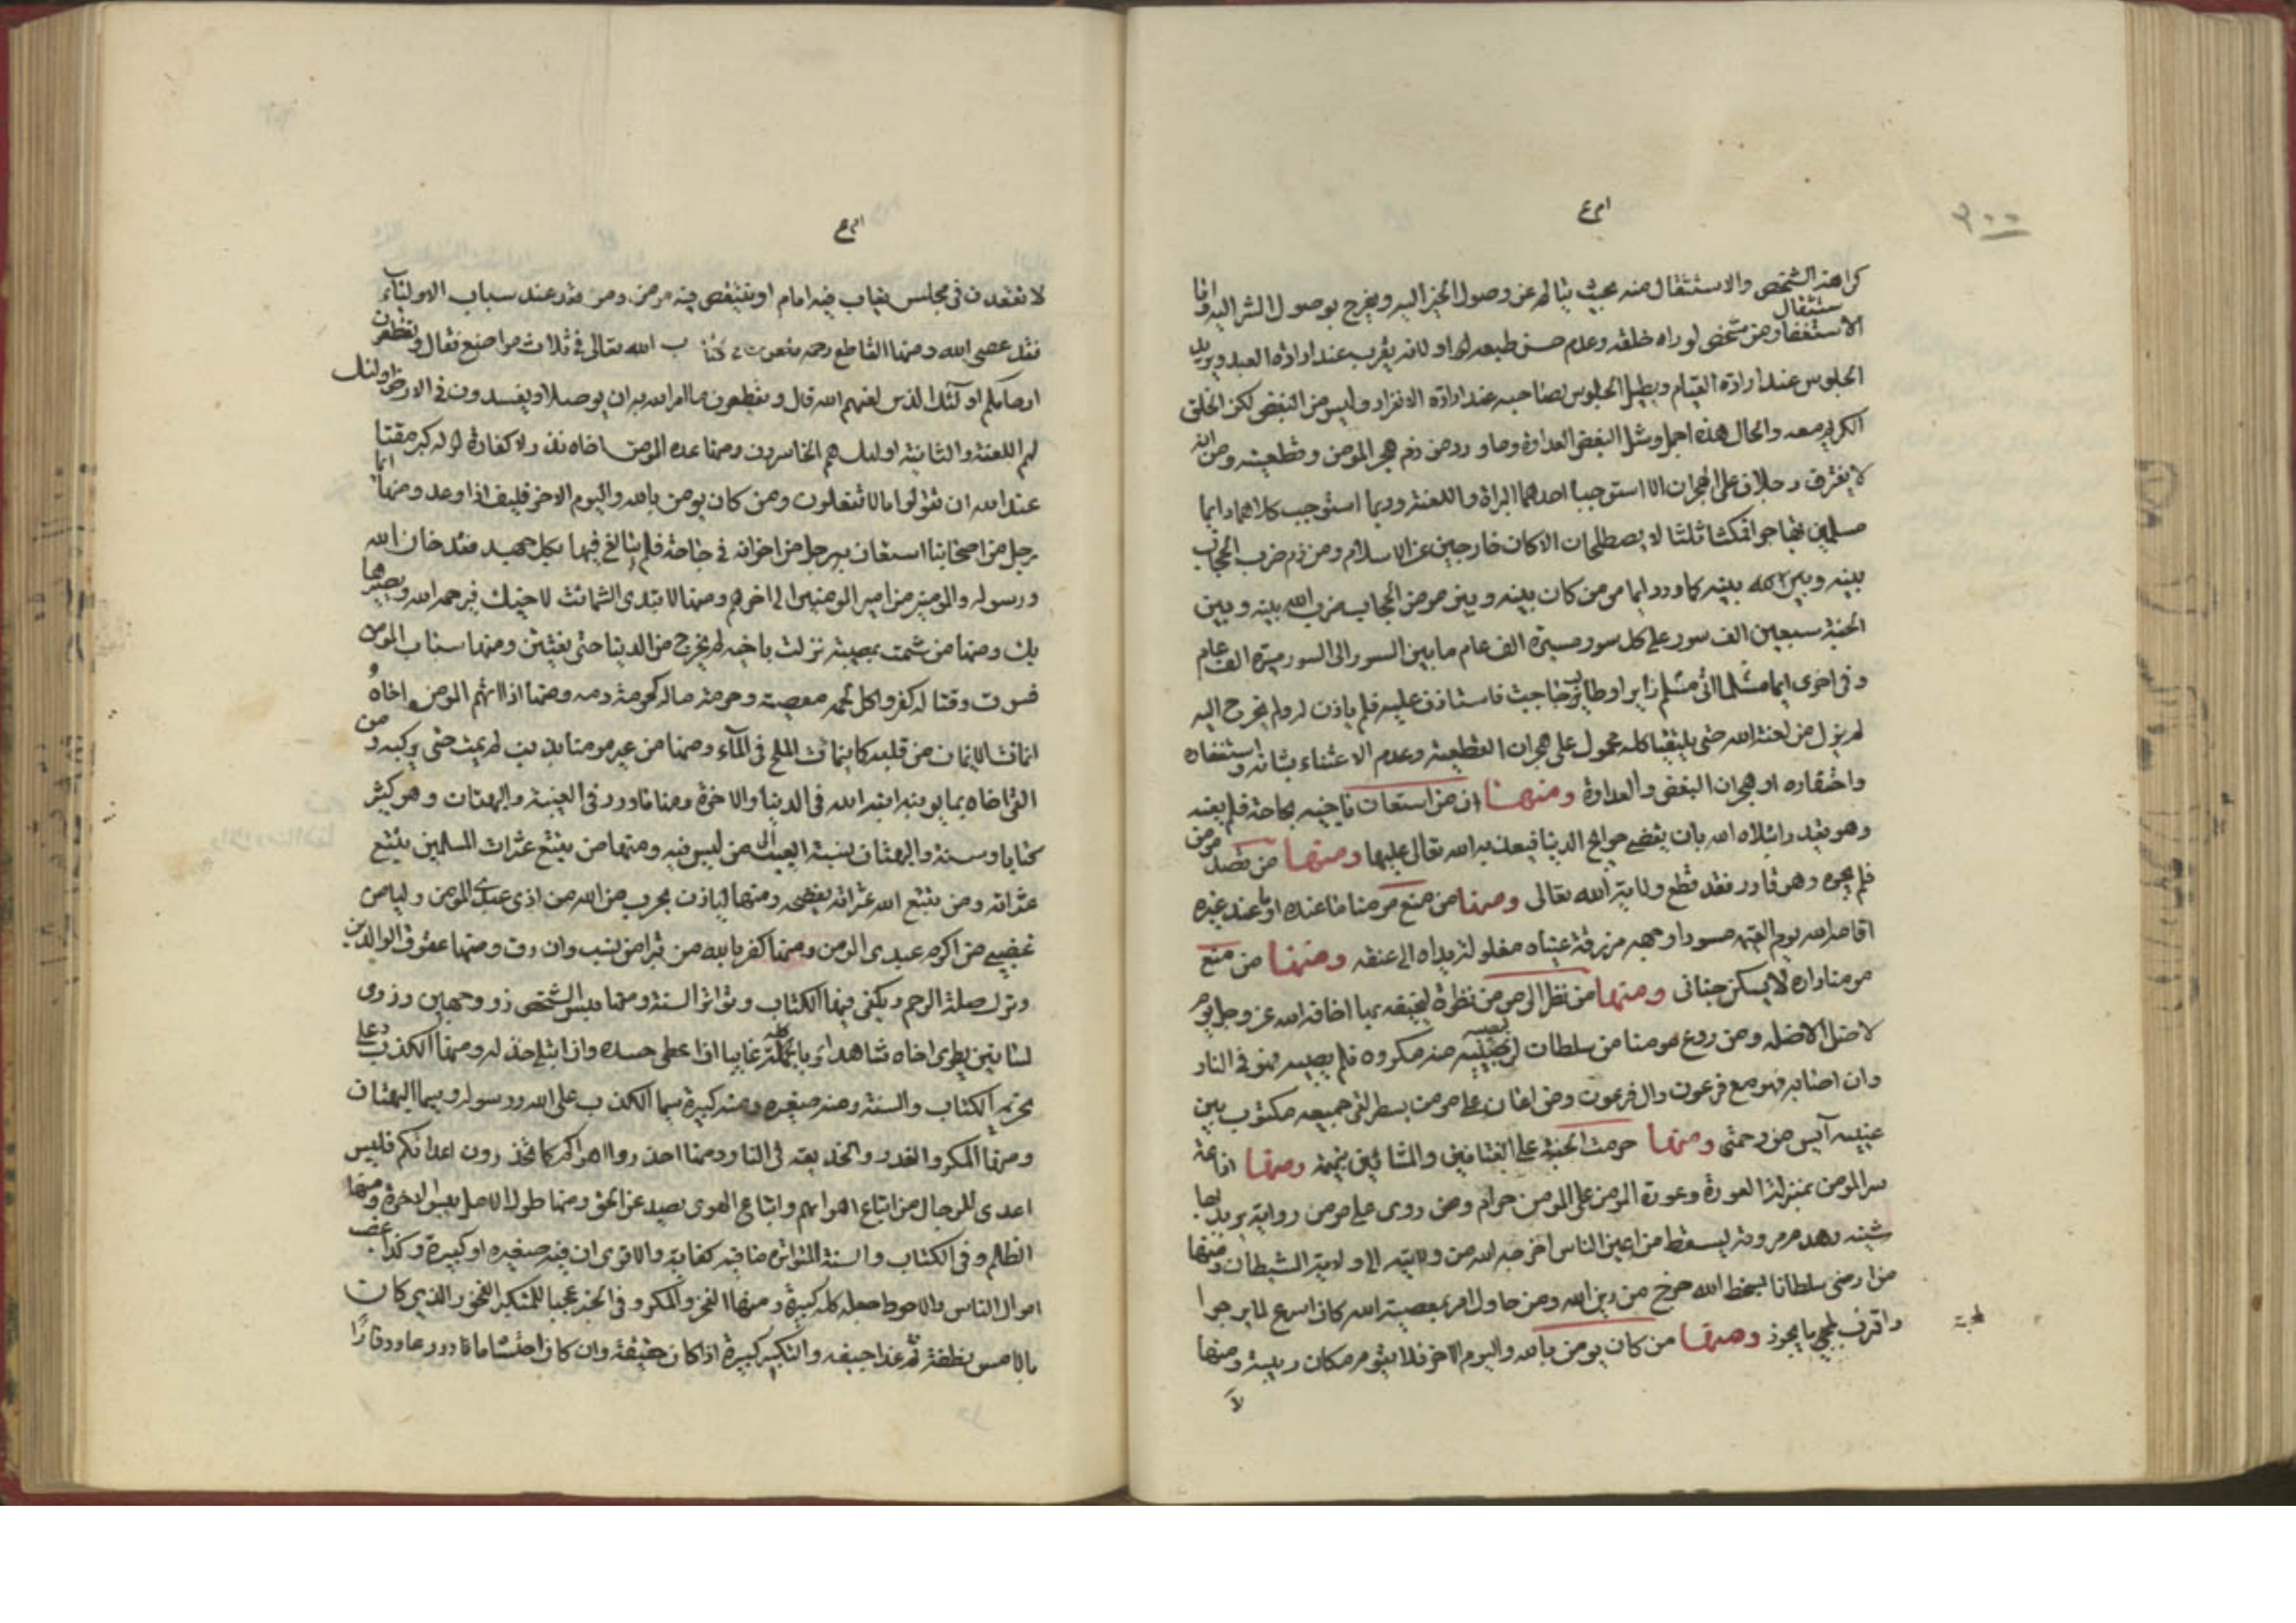 امرع
٣٠٠
كراهة الشخص والاستثقال منه بحيث يتالم عن وصول الخير اليه ويفرح بوصول الشر اليه واما
الاستثقال من شخص لوراه خلقه وعدم حسن طبعه او لانه يقرب عند ارادة العبد ويريد
الجلوس عند ارادة القيام ويطيل الجلوس بصاحبه عند ارادة الانفراد وليس من البغض لكن الخلق
الكريم معه والحال هذه اجمل ومثل البغض العداوة وما ورد من ذم هجر المومن وقطيعته ومن انه
لا يفترق رجلان على الهجران الا استوجب احدهما البراة واللعنة وربما استوجب كلاهما وايما
مسلمين تهاجرا فمكثا ثلثا لا يصطلحان الا كانا خارجين عن الاسلام ومن ذم ضرب الحجاب
بينه وبين بينه كما ورد ايما مومن كان بينه وبين مومن الحجاب ضرب الله بينه وبين
الجنة سبعين الف سور على كل سور مسيرة الف عام ما بين السور الى السور مسيرة الف عام
وفي اخرى ايما مسلم اتى مسلم زايرا او طالب حاجت فاستاذن عليه فلم ياذن له ولم يخرج اليه
لم يزل من لعنة الله حتى يلتقيا كله محمول على هجران القطيعة وعدم الاعتناء بشانه واستخفافه
واحتقاره او هجران البغض والعداوة ومنها ان من استعان باخيه بحاجة فلم يعنه
وهو يقدر ابتلاه الله بان يقضي حوايج الدنيا فيعذبه الله تعالى عليها ومنها من قصد مومن
فلم يجره وهو قادر فقد قطع ولاية الله تعالى ومنها من منع مومنا ما عنده او ما عند غيره
اقامه الله يوم القيمه مسودا وجهه مزرقة عيناه مغلولة يداه الى عنقه ومنها من منع
مومنا داره لا يسكن جناني ومنها من نظر الى مومن نظرة ليخيفه بها اخافه الله عز وجل يوم
لا ظل الا ظله ومن روع مومنا من سلطان ليصيبه منه مكروه فلم يصبه فهو في النار
وان اصابه فهو مع فرعون وال فرعون ومن اعان على مومن بسطر لقي جميعه مكتوب بين
عينيه آيس من رحمتي ومنها حرمت الجنة على القتاتين والمشائين بنميمة ومنها اذاعة
سر المومن بمنزلة العورة وعورة المومن على المومن حرام ومن روى على مومن رواية يريد بها
شينه وهدم مروته ليسقط من اعين الناس اخرجه الله من ولايته الى ولاية الشيطان ومنها
من ارضى سلطانا بسخط الله خرج من دين الله ومن حاول امر بمعصية الله كان اسرع لما يرجوا
واقرب لمجي ما يحذر ومنها من كان يومن بالله واليوم الاخر فلا يقوم مكان ريبة ومنها
لا
امرع
لا تقعدن في مجلس يغاب فيه امام او ينتقص فيه مومن ومن قعد عند سباب الاولياء
فقد عصى الله ومنها القاطع رحمه الله تعالى في ثلاث مواضع فقال وتقطعون
ارحامكم اولئك الذين لعنهم الله قال ويقطعون ما امر الله به ان يوصل ويفسدون في الارض اولئك
لهم اللعنة والثانية اولئك هم الخاسرون ومنها عدة المومن اخاه نذر لا كفارة له كبر مقتا
عند الله ان تقولوا ما لا تفعلون ومن كان يومن بالله واليوم الاخر فليف اذا وعد ومنها ايما
رجل من اصحابنا استعان به رجل من اخوانه في حاجة فلم يبالغ فيها بكل جهد فقد خان الله
ورسوله والمومنين من امير المومنين الى اخرهم ومنها لا تبدى الشماتة لاخيك فيرحمه الله ويصيرها
بك ومنها من شمت بمصيبة نزلت باخيه لم يخرج من الدنيا حتى يفتتن ومنها سباب المومن
فسوق وقتاله كفر واكل لحمه معصية وحرمة ماله كحرمة دمه ومنها اذا اتهم المومن اخاه
انماث الايمان من قلبه كما ينماث الملح في المآء ومنها من عير مومنا بذنب لم يمت حتى يركبه ومن
القى اخاه بما يونبه انبه الله في الدنيا والاخرة ومنها ما ورد في الغيبة والبهتان وهو كثير
كتابا وسنة والبهتان نسبة العيب الى من ليس فيه ومنها من يتتبع عثرات المسلمين يتتبع
عثراته ومن يتتبع الله عثراته يفضحه ومنها لياذن بحرب من الله من اذى عبدي المومن وليامن
غضبي من اكرم عبدي المومن ومنها كفر بالله من تبرا من نسب وان دق ومنها عقوق الوالدين
وترك صلة الرحم ويكفي فيها الكتاب وتواتر السنة ومنها بئس الشخص ذو وجهين وذوى
لسانين يطري اخاه شاهدا وياكله غايبا اذا اعطى حسده واذا ابتلى خذله ومنها الكذب وعلى
تحريمه الكتاب والسنة ومنه صغيره ومنه كبيرة سيما الكذب على الله ورسوله وسيما البهتان
ومنها المكر والغدر والخديعة في النار ومنها احذروا اهواكم كما تحذرون اعدائكم فليس
اعدى للرجال من اتباع اهوائهم واتباع الهوى يصد عن الحق ومنها طول الامل ينسي الاخرة ومنها
الظلم وفي الكتاب والسنة المتواترة ما فيه كفاية والاقوى ان فيه صغيره او كبيرة وكذا غصب
اموال الناس والاحوط جعله كله كبيرة ومنها الفخر والمكر وفي الخبر عجبا للمتكبر الفخور الذي كان
بالامس نطفة ثم غدا جيفه والتكبر كبيرة اذا كان حقيقة وان كان احتشاما قادر عاود قارا